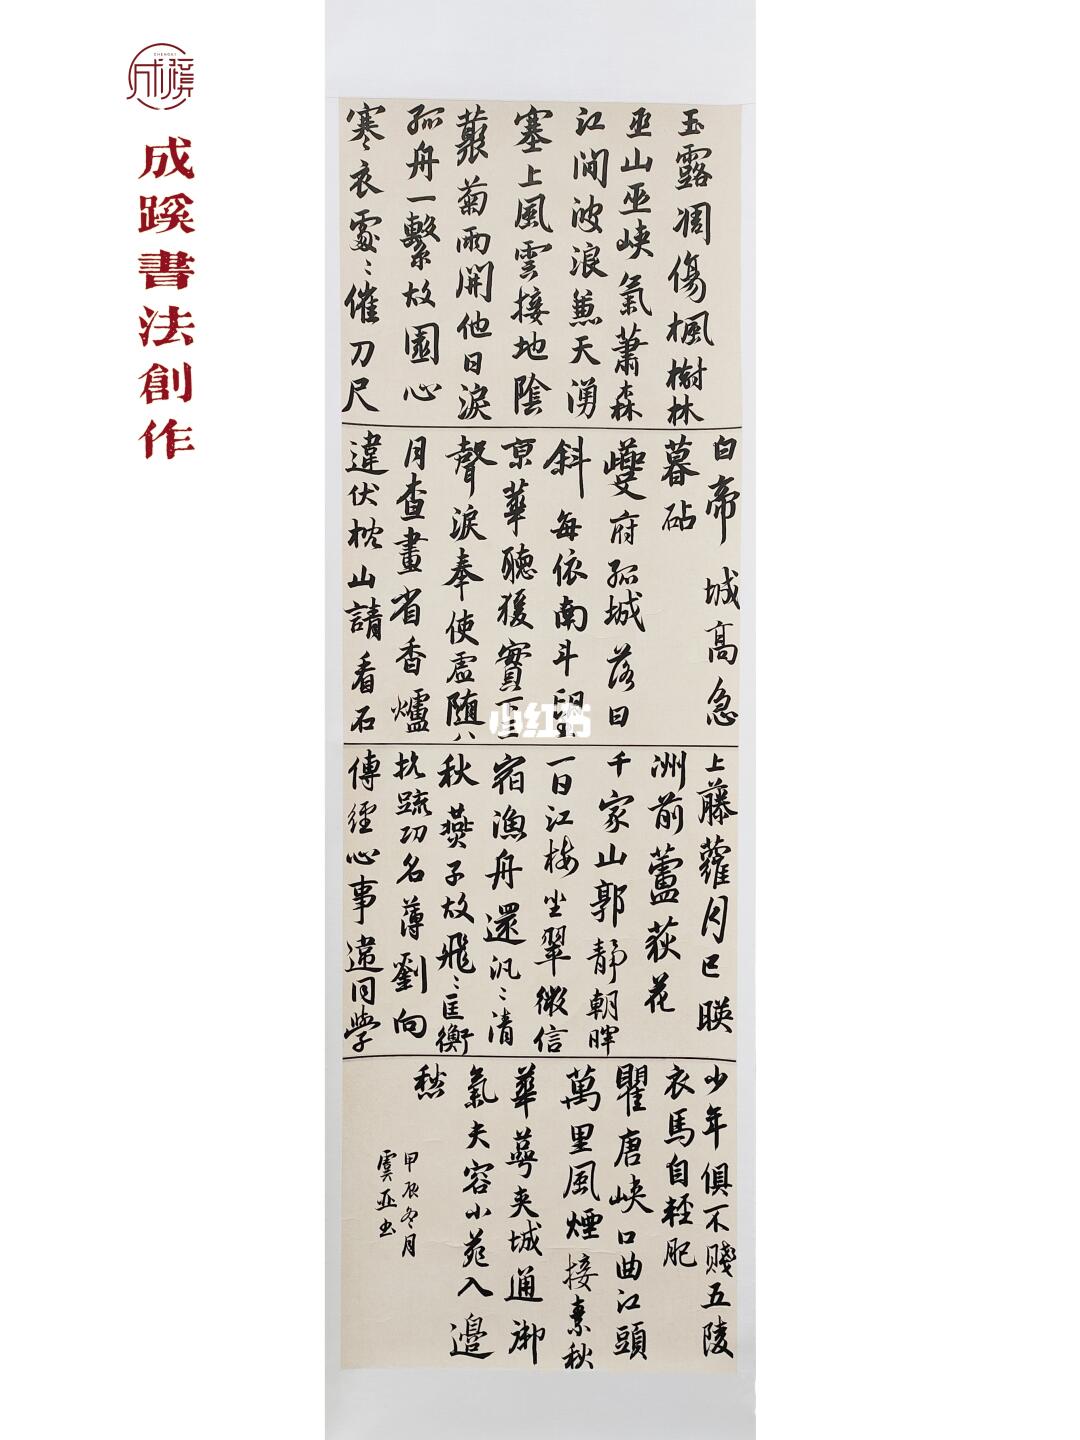 CHENGXI
成蹊
成蹊書法創作
玉露凋傷楓樹林
巫山巫峽氣蕭森
江間波浪兼天湧
塞上風雲接地陰
叢菊兩開他日淚
孤舟一繫故園心
寒衣處〻催刀尺
白帝城高急
暮砧
夔府孤城落日
斜每依南斗望
京華聽猨實下三
聲淚奉使虛随八
月查畫省香爐
違伏枕山請看石
上藤蘿月已映
洲前蘆荻花
千家山郭靜朝暉
一日江樓坐翠微信
宿漁舟還汎〻清
秋燕子故飛〻匡衡
抗疏功名薄劉向
傳經心事違同學
少年俱不賤五陵
衣馬自輕肥
瞿唐峽口曲江頭
萬里風煙接素秋
華萼夾城通御
氣夫容小苑入邊
愁
甲辰冬月
虞亚书
小红书